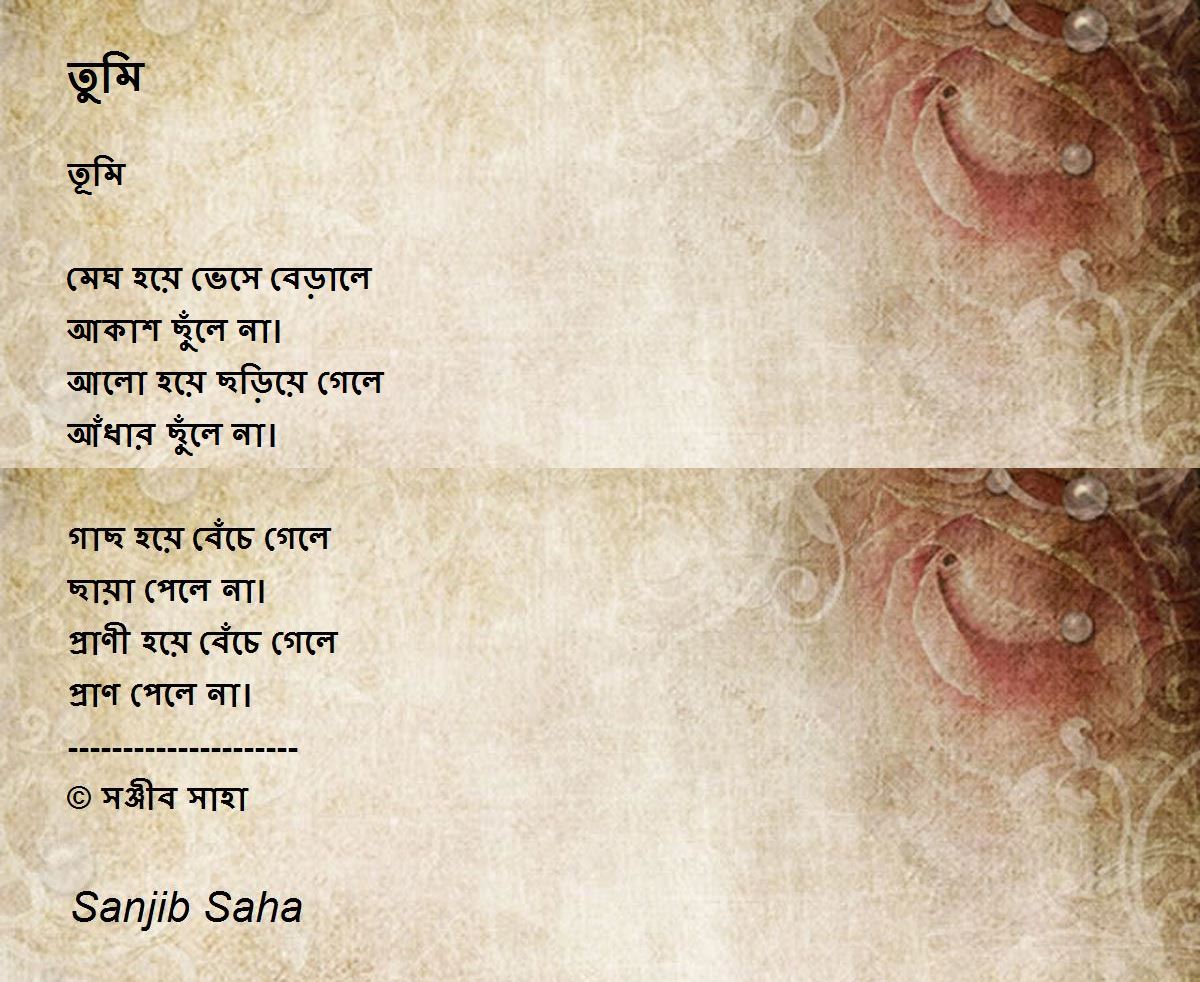 তুমি
তূমি
মেঘ হয়ে ভেসে বেড়ালে
আকাশ ছুঁলে না।
আলো হয়ে ছড়িয়ে গেলে
আঁধার ছুঁলে না।
গাছ হয়ে বেঁচে গেলে
ছায়া পেলে না।
প্রাণী হয়ে বেঁচে গেলে
প্রাণ পেলে না।
---------------------
© সঞ্জীব সাহা
Sanjib Saha